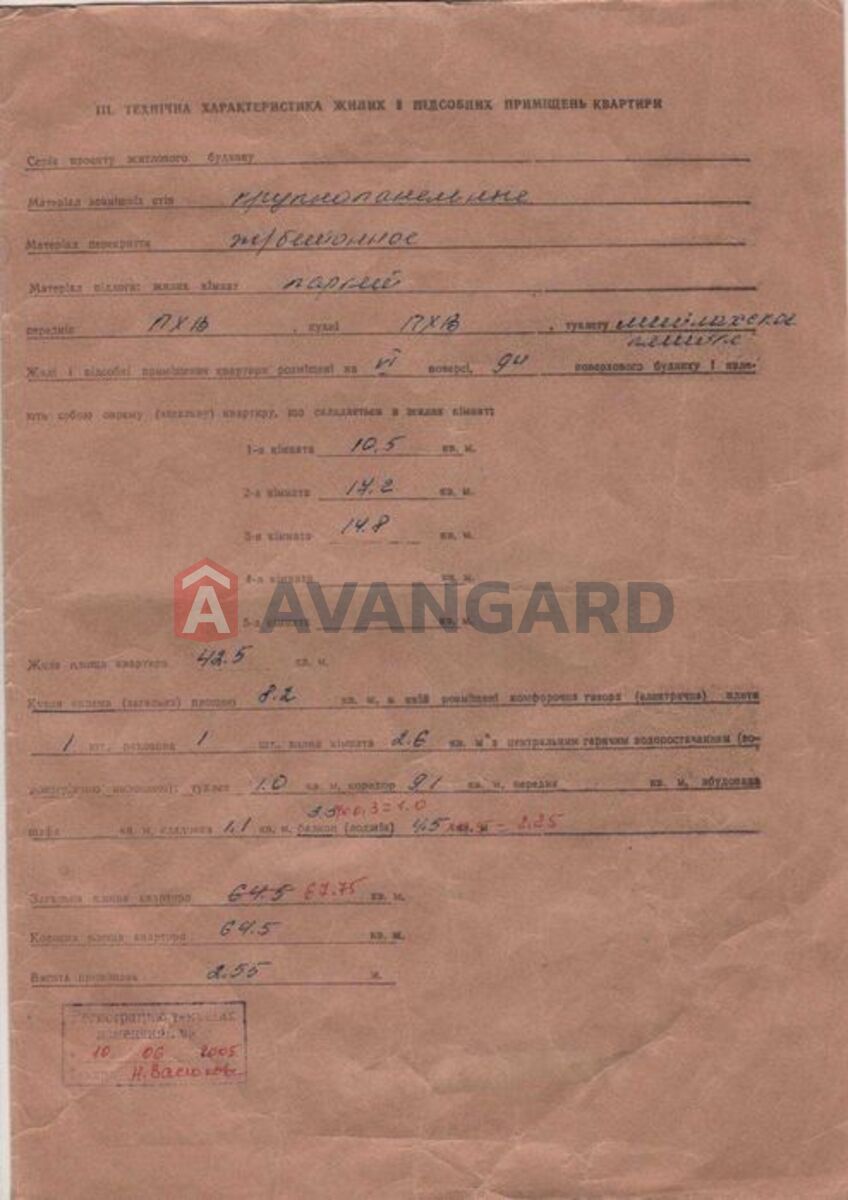 III. ТЕХНІЧНА ХАРАКТЕРИСТИКА ЖИЛИХ І ПІДСОБНИХ ПРИМІЩЕНЬ КВАРТИРИ
Серія проекту житлового будинку
Матеріал зовнішніх стін крупнопанельные
Матеріал перекриття ж/бетонное
Матеріал підлоги: жилих кімнат паркет
передпік ПХВ , кухні ПХВ , туалету метлахская
плитка
Жилі і підсобні приміщення квартири розміщені на VI поверсі, 9ти поверхового будинку і явля-
ють собою окрему (загальну) квартиру, що складається з жилих кімнат:
1-а кімната 10.5 кв. м.
2-а кімната 17.2 кв. м.
3-я кімната 14.8 кв. м.
4-а кімната кв. м.
AVANGARD
5-а кімната кв. м.
Жила площа квартири 42.5 кв. м.
Кухня окрема (загальна) площею 8.2 кв. м, в якій розміщені комфорочна газова (електрична) плита
1 шт., раковина 1 шт., ванна кімната 2.6 кв. м з центральним гарячим водопостачанням (во-
туалет 1.0 кв. м, коридор 9.1 кв. м, передня кв. м, вбудована
3.3х0,3=1.0
шафа кв. м, кладовка 1.1 кв. м, балкон (лоджія) 4.5 кв. м = 2.25
Загальна площа квартири 64.5 67.75 кв. м.
Корисна площа квартири 64.5 кв. м.
Висота приміщень 2.55 м.
Регистрацию текущих
изменений
10 06 2005
Н.Васюков